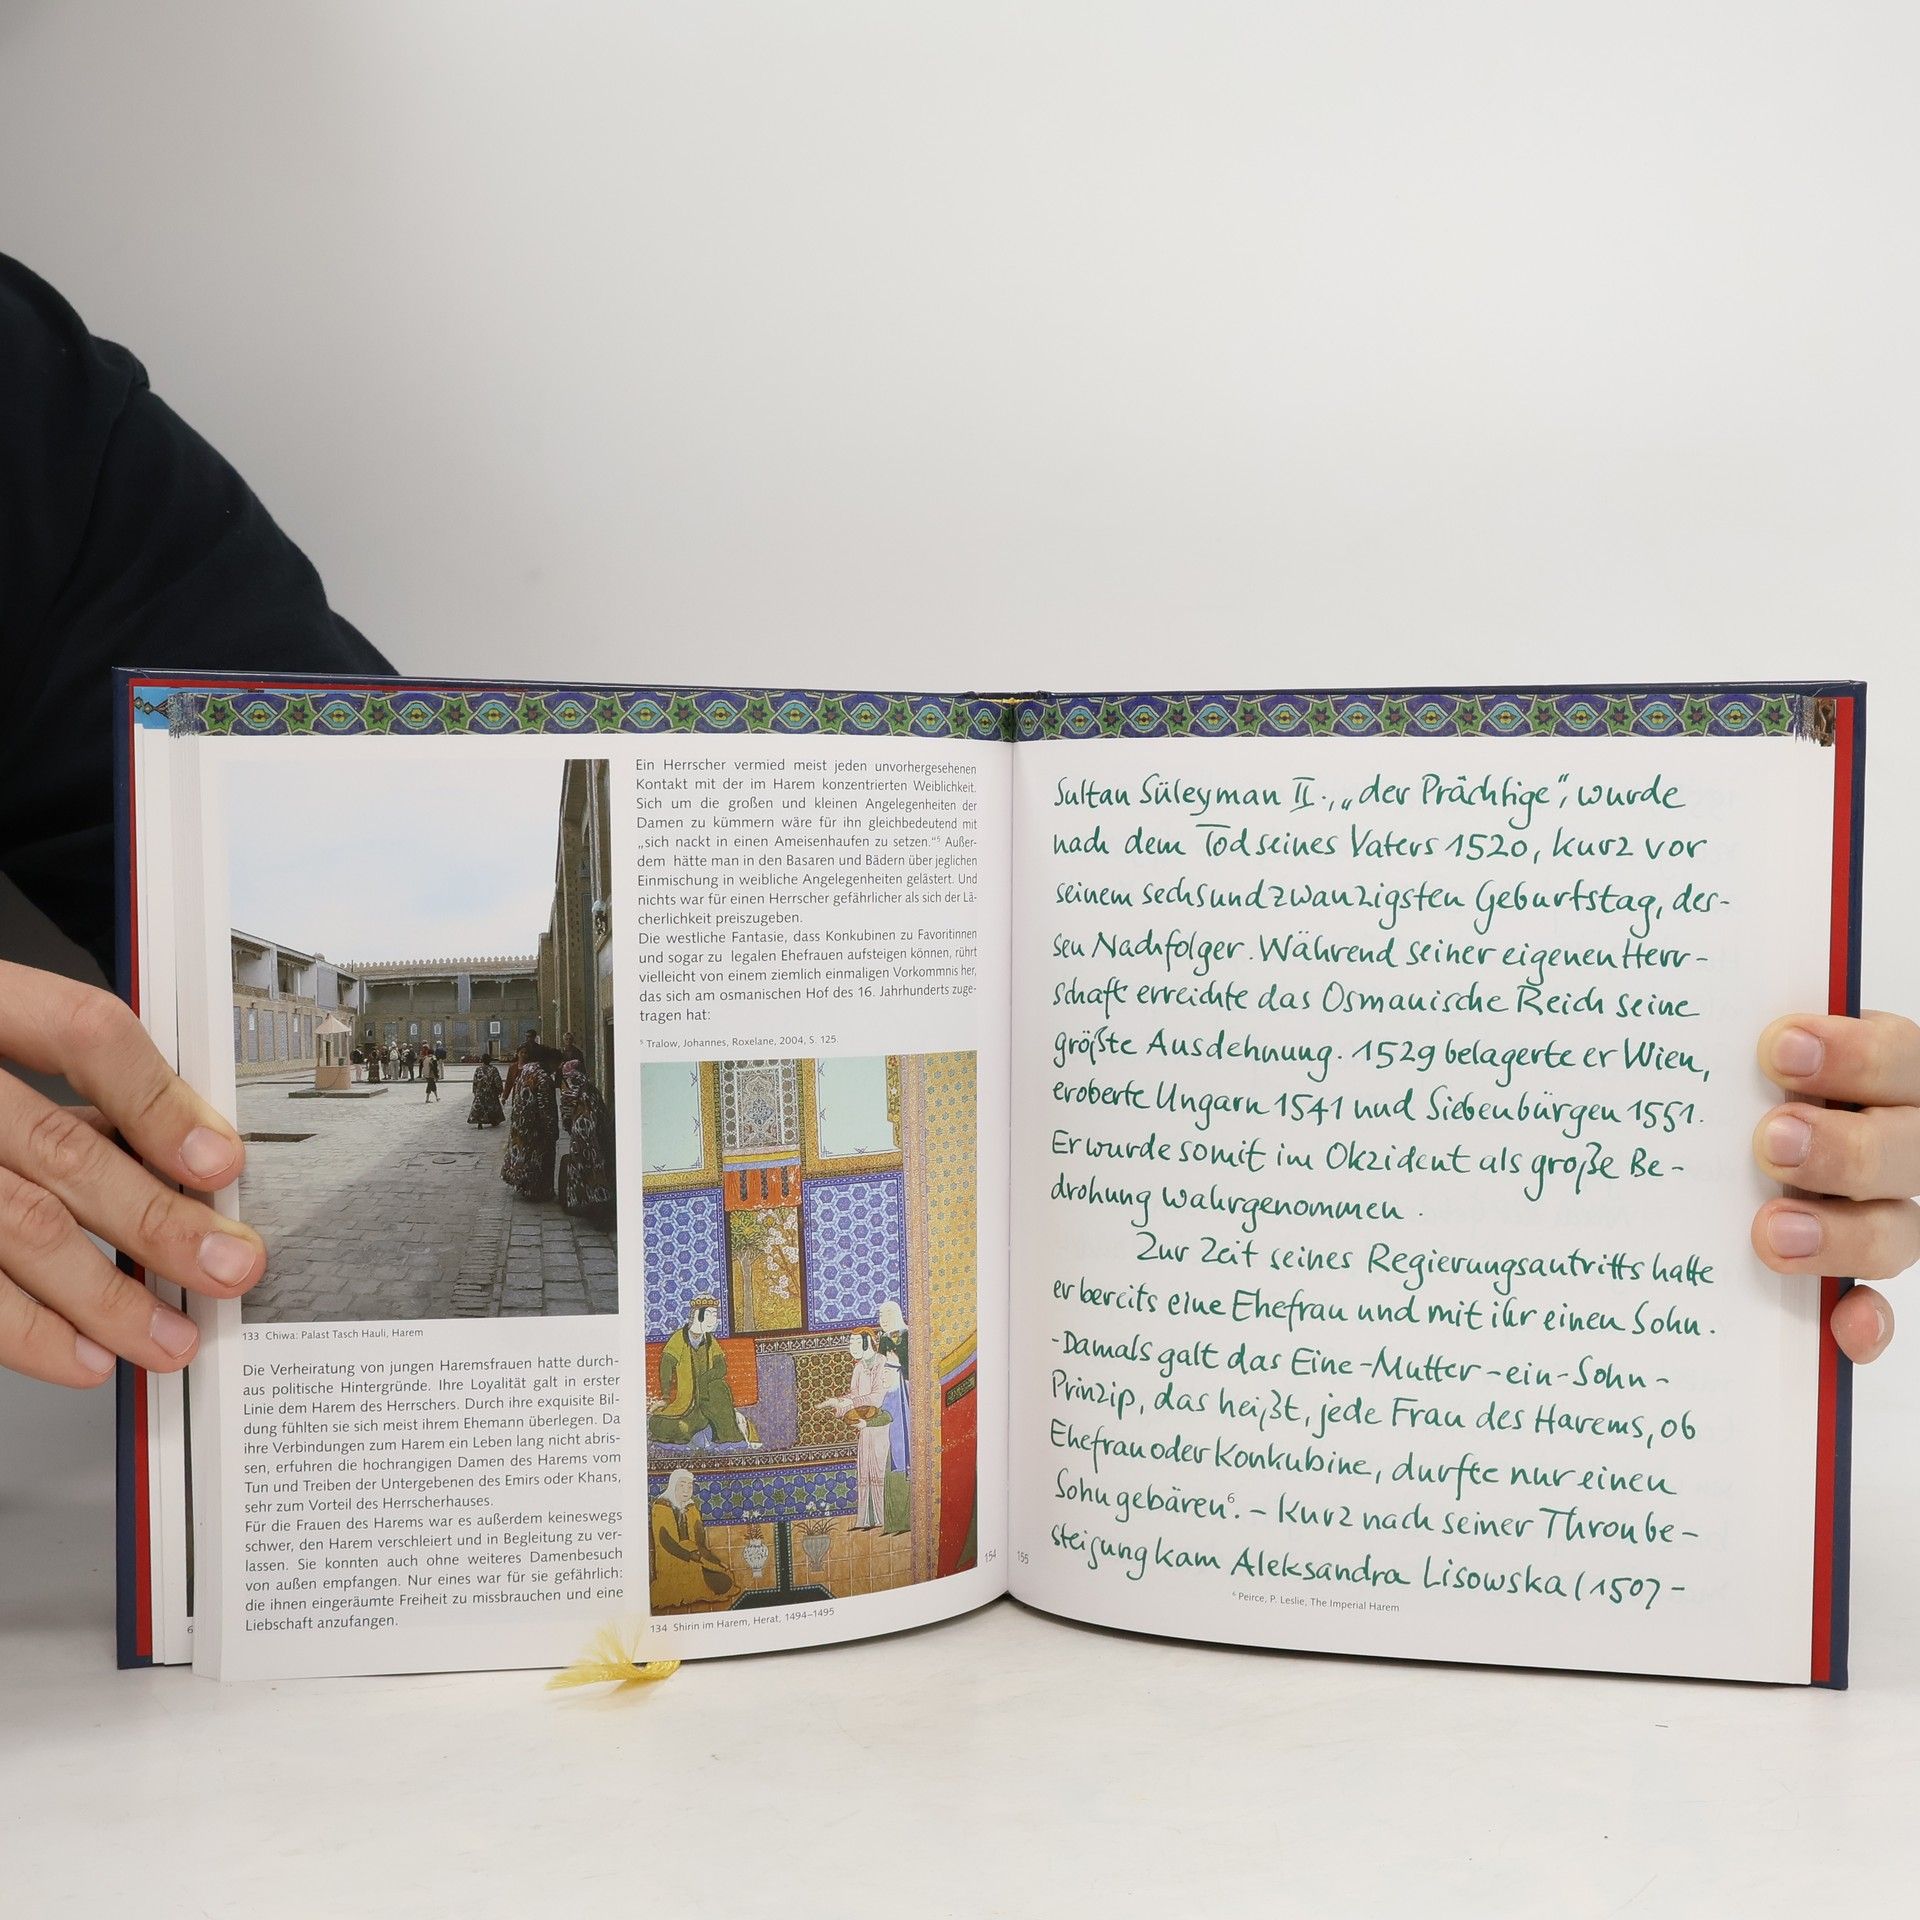 133 Chiwa: Palast Tasch Hauli, Harem
Die Verheiratung von jungen Haremsfrauen hatte durch-
aus politische Hintergründe. Ihre Loyalität galt in erster
Linie dem Harem des Herrschers. Durch ihre exquisite Bil-
dung fühlten sie sich meist ihrem Ehemann überlegen. Da
ihre Verbindungen zum Harem ein Leben lang nicht abris-
sen, erfuhren die hochrangigen Damen des Harems vom
Tun und Treiben der Untergebenen des Emirs oder Khans,
sehr zum Vorteil des Herrscherhauses.
Für die Frauen des Harems war es außerdem keineswegs
schwer, den Harem verschleiert und in Begleitung zu ver-
lassen. Sie konnten auch ohne weiteres Damenbesuch
von außen empfangen. Nur eines war für sie gefährlich:
die ihnen eingeräumte Freiheit zu missbrauchen und eine
Liebschaft anzufangen.
Ein Herrscher vermied meist jeden unvorhergesehenen
Kontakt mit der im Harem konzentrierten Weiblichkeit.
Sich um die großen und kleinen Angelegenheiten der
Damen zu kümmern wäre für ihn gleichbedeutend mit
„sich nackt in einen Ameisenhaufen zu setzen.“⁵ Außer-
dem hätte man in den Basaren und Bädern über jeglichen
Einmischung in weibliche Angelegenheiten gelästert. Und
nichts war für einen Herrscher gefährlicher als sich der Lä-
cherlichkeit preiszugeben.
Die westliche Fantasie, dass Konkubinen zu Favoritinnen
und sogar zu legalen Ehefrauen aufsteigen können, rührt
vielleicht von einem ziemlich einmaligen Vorkommnis her,
das sich am osmanischen Hof des 16. Jahrhunderts zuge-
tragen hat:
⁵ Tralow, Johannes, Roxelane, 2004, S. 125.
134 Shirin im Harem, Herat, 1494–1495
154
155
Sultan Süleyman II., „der Prächtige“, wurde
nach dem Tod seines Vaters 1520, kurz vor
seinem sechsundzwanzigsten Geburtstag, des-
sen Nachfolger. Während seiner eigenen Herr-
schaft erreichte das Osmanische Reich seine
größte Ausdehnung. 1529 belagerte er Wien,
eroberte Ungarn 1541 und Siebenbürgen 1551.
Er wurde somit im Okzident als große Be-
drohung wahrgenommen.
Zur Zeit seines Regierungsantritts hatte
er bereits eine Ehefrau und mit ihr einen Sohn.
-Damals galt das Eine-Mutter-ein-Sohn-
Prinzip, das heißt, jede Frau des Harems, ob
Ehefrau oder Konkubine, durfte nur einen
Sohn gebären⁶. – Kurz nach seiner Thronbe-
steigung kam Aleksandra Lisowska (1507-
⁶ Peirce, P. Leslie, The Imperial Harem